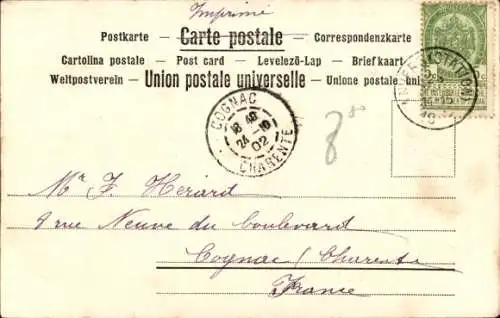 Imprimé
Postkarte — Carte postale — Correspondenzkarte
Cartolina postale — Post card — Levelező-Lap — Briefkaart
Weltpostverein — Union postale universelle — Unione postale
COGNAC
18 40
24 - 10
02
CHARENTE
8 50
Mr F. Herard
9 rue Neuve du boulevard
Cognac / Charente
France